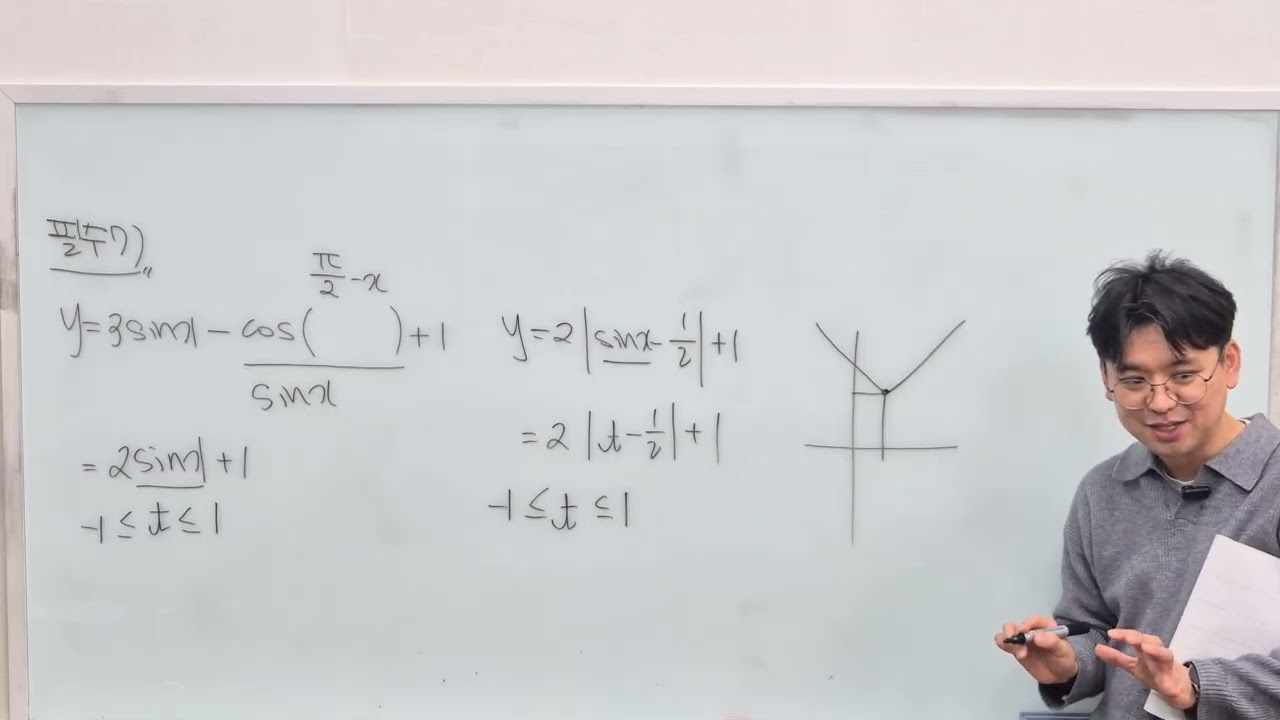 π/2(부각)
π/2 - x
y = 3sinx - cos(      ) + 1
sinx
= 2sinx + 1
-1 ≤ t ≤ 1
y = 2|sinx - 1/2| + 1
= 2|t - 1/2| + 1
-1 ≤ t ≤ 1